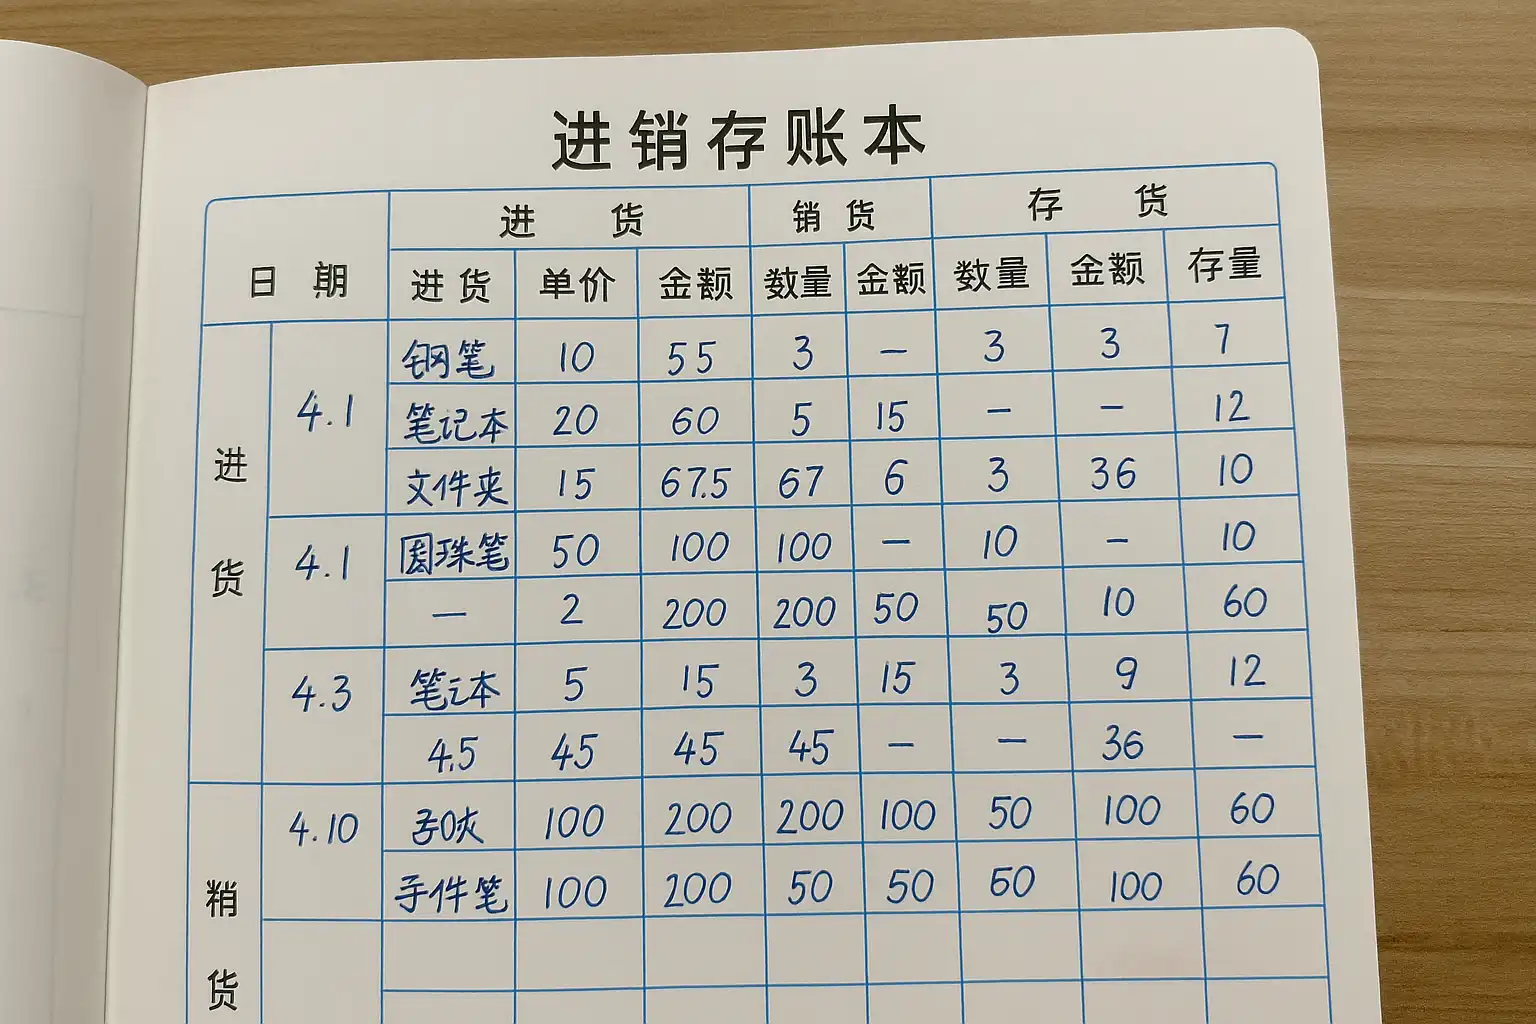 进销存账本
进 货 销 货 存 货
日 期 进货 单价 金额 数量 金额 数量 金额 存量
进货
4.1 钢笔 10 55 3 — 3 3 7
笔记本 20 60 5 15 — — 12
文件夹 15 67.5 67 6 3 36 10
4.1 圆珠笔 50 100 100 — 10 — 10
— 2 200 200 50 50 10 60
4.3 本 5 15 3 15 3 9 12
4.5 45 45 45 — — 36 —
货
4.10 100 200 200 100 50 100 60
手件笔 100 200 50 50 60 100 60